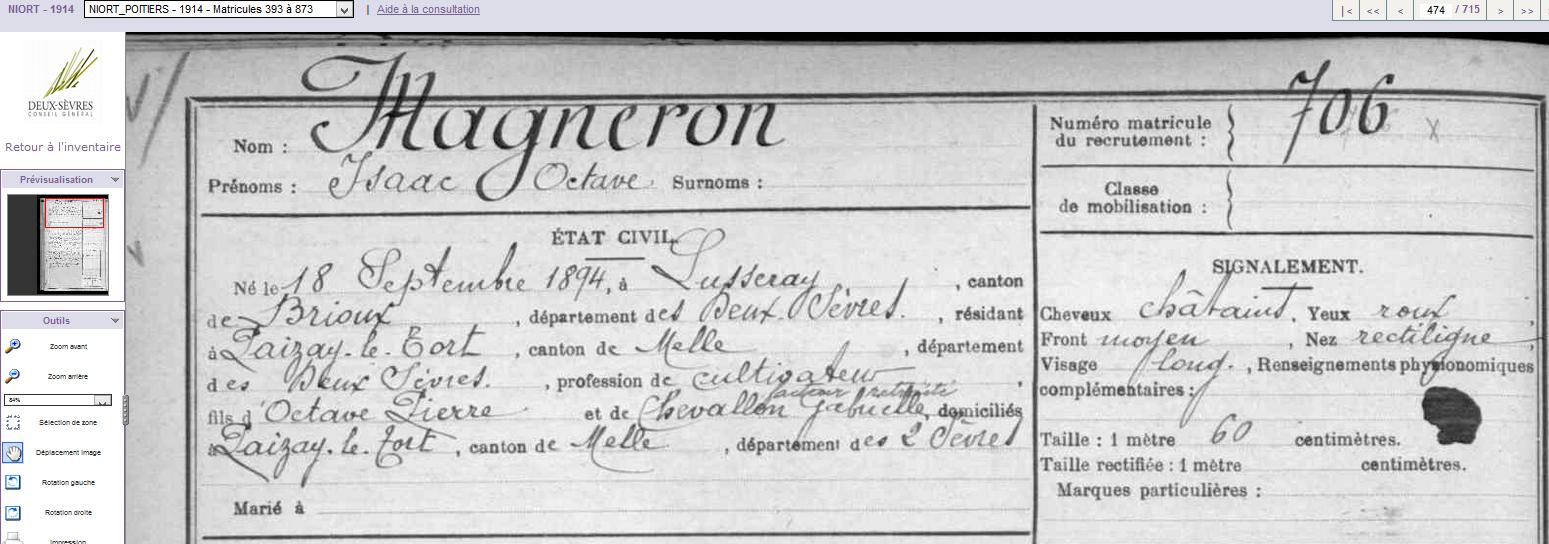 NIORT - 1914 NIORT_POITIERS - 1914 - Matricules 393 à 873 | Aide à la consultation |< << < 474 / 715 > >>
DEUX-SÈVRES
CONSEIL GÉNÉRAL
Retour à l'inventaire
Prévisualisation
Outils
Zoom avant
Zoom arrière
84%
Sélection de zone
Déplacement image
Rotation gauche
Rotation droite
Impression
Nom : Magneron
Prénoms : Isaac Octave Surnoms :
ÉTAT CIVIL.
Né le 18 Septembre 1894, à Lusseray, canton
de Brioux, département des Deux-Sèvres., résidant
à Paizay-le-Tort, canton de Melle, département
des Deux Sèvres., profession de cultivateur,
facteur retraité
fils d'Octave Pierre et de Chevallon Gabrielle, domiciliés
à Paizay-le-Tort, canton de Melle, département des 2 Sèvres
Marié à
Numéro matricule
du recrutement : 706
Classe
de mobilisation :
SIGNALEMENT.
Cheveux châtains, Yeux roux,
Front moyen, Nez rectiligne,
Visage long., Renseignements physionomiques
complémentaires :
Taille : 1 mètre 60 centimètres.
Taille rectifiée : 1 mètre centimètres.
Marques particulières :